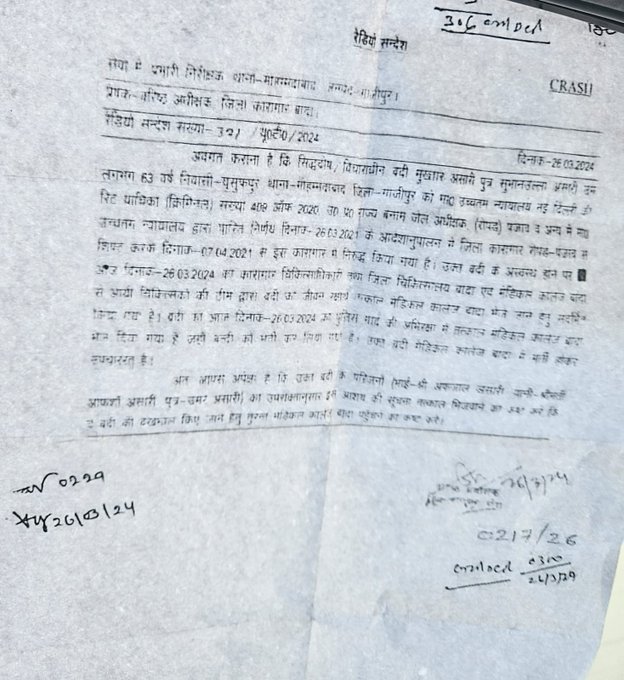 306 amded
रेडियो सन्देश
CRASH
सेवा में प्रभारी निरीक्षक थाना-मोहम्मदाबाद जनपद-गाजीपुर।
प्रेषक-वरिष्ठ अधीक्षक जिला कारागार बांदा।
रेडियो सन्देश संख्या- 321 /यू0टी0/2024
दिनांक-26.03.2024
अवगत कराना है कि सिद्धदोष/विचाराधीन बंदी मुख्तार अंसारी पुत्र सुभानउल्ला अंसारी उम्र
लगभग 63 वर्ष निवासी-युसुफपुर थाना-मोहम्मदाबाद जिला-गाजीपुर को मा0 उच्चतम न्यायालय नई दिल्ली की
रिट याचिका (क्रिमिनल) संख्या 409 ऑफ 2020 उ0 प्र0 राज्य बनाम जेल अधीक्षक (रोपड़) पंजाब व अन्य में मा0
उच्चतम न्यायालय द्वारा पारित निर्णय दिनांक-26.03.2021 के आदेशानुपालन में जिला कारागार रोपड़-पंजाब से
शिफ्ट करके दिनांक-07.04.2021 से इस कारागार में निरूद्ध किया गया है। उक्त बंदी के अस्वस्थ होने पर
आज दिनांक-26.03.2024 को कारागार चिकित्साधिकारी तथा जिला चिकित्सालय बांदा एवं मेडिकल कालेज बांदा
से आयी चिकित्सकों की टीम द्वारा बंदी को जीवन रक्षार्थ तत्काल मेडिकल कालेज बांदा भेजे जाने हेतु संदर्भित
किया गया है। बंदी को आज दिनांक-26.03.2024 को पुलिस गार्द की अभिरक्षा में तत्काल मेडिकल कालेज बांदा
भेज दिया गया है जहाँ बन्दी को भर्ती कर लिया गया है। उक्त बंदी मेडिकल कालेज बांदा में भर्ती होकर
उपचाररत है।
अतः आपसे अपेक्षा है कि उक्त बंदी के परिजनों (भाई-श्री अफजाल अंसारी पत्नी-श्रीमती
आफशां अंसारी पुत्र-उमर अंसारी) को उपरोक्तानुसार इस आशय की सूचना तत्काल भिजवाने का कष्ट करें कि
वे बंदी की देखभाल किए जाने हेतु तुरन्त मेडिकल कालेज बांदा पहुंचने का कष्ट करें।
0229
26/03/24
26/3/24
0217/26
0310
26/3/24